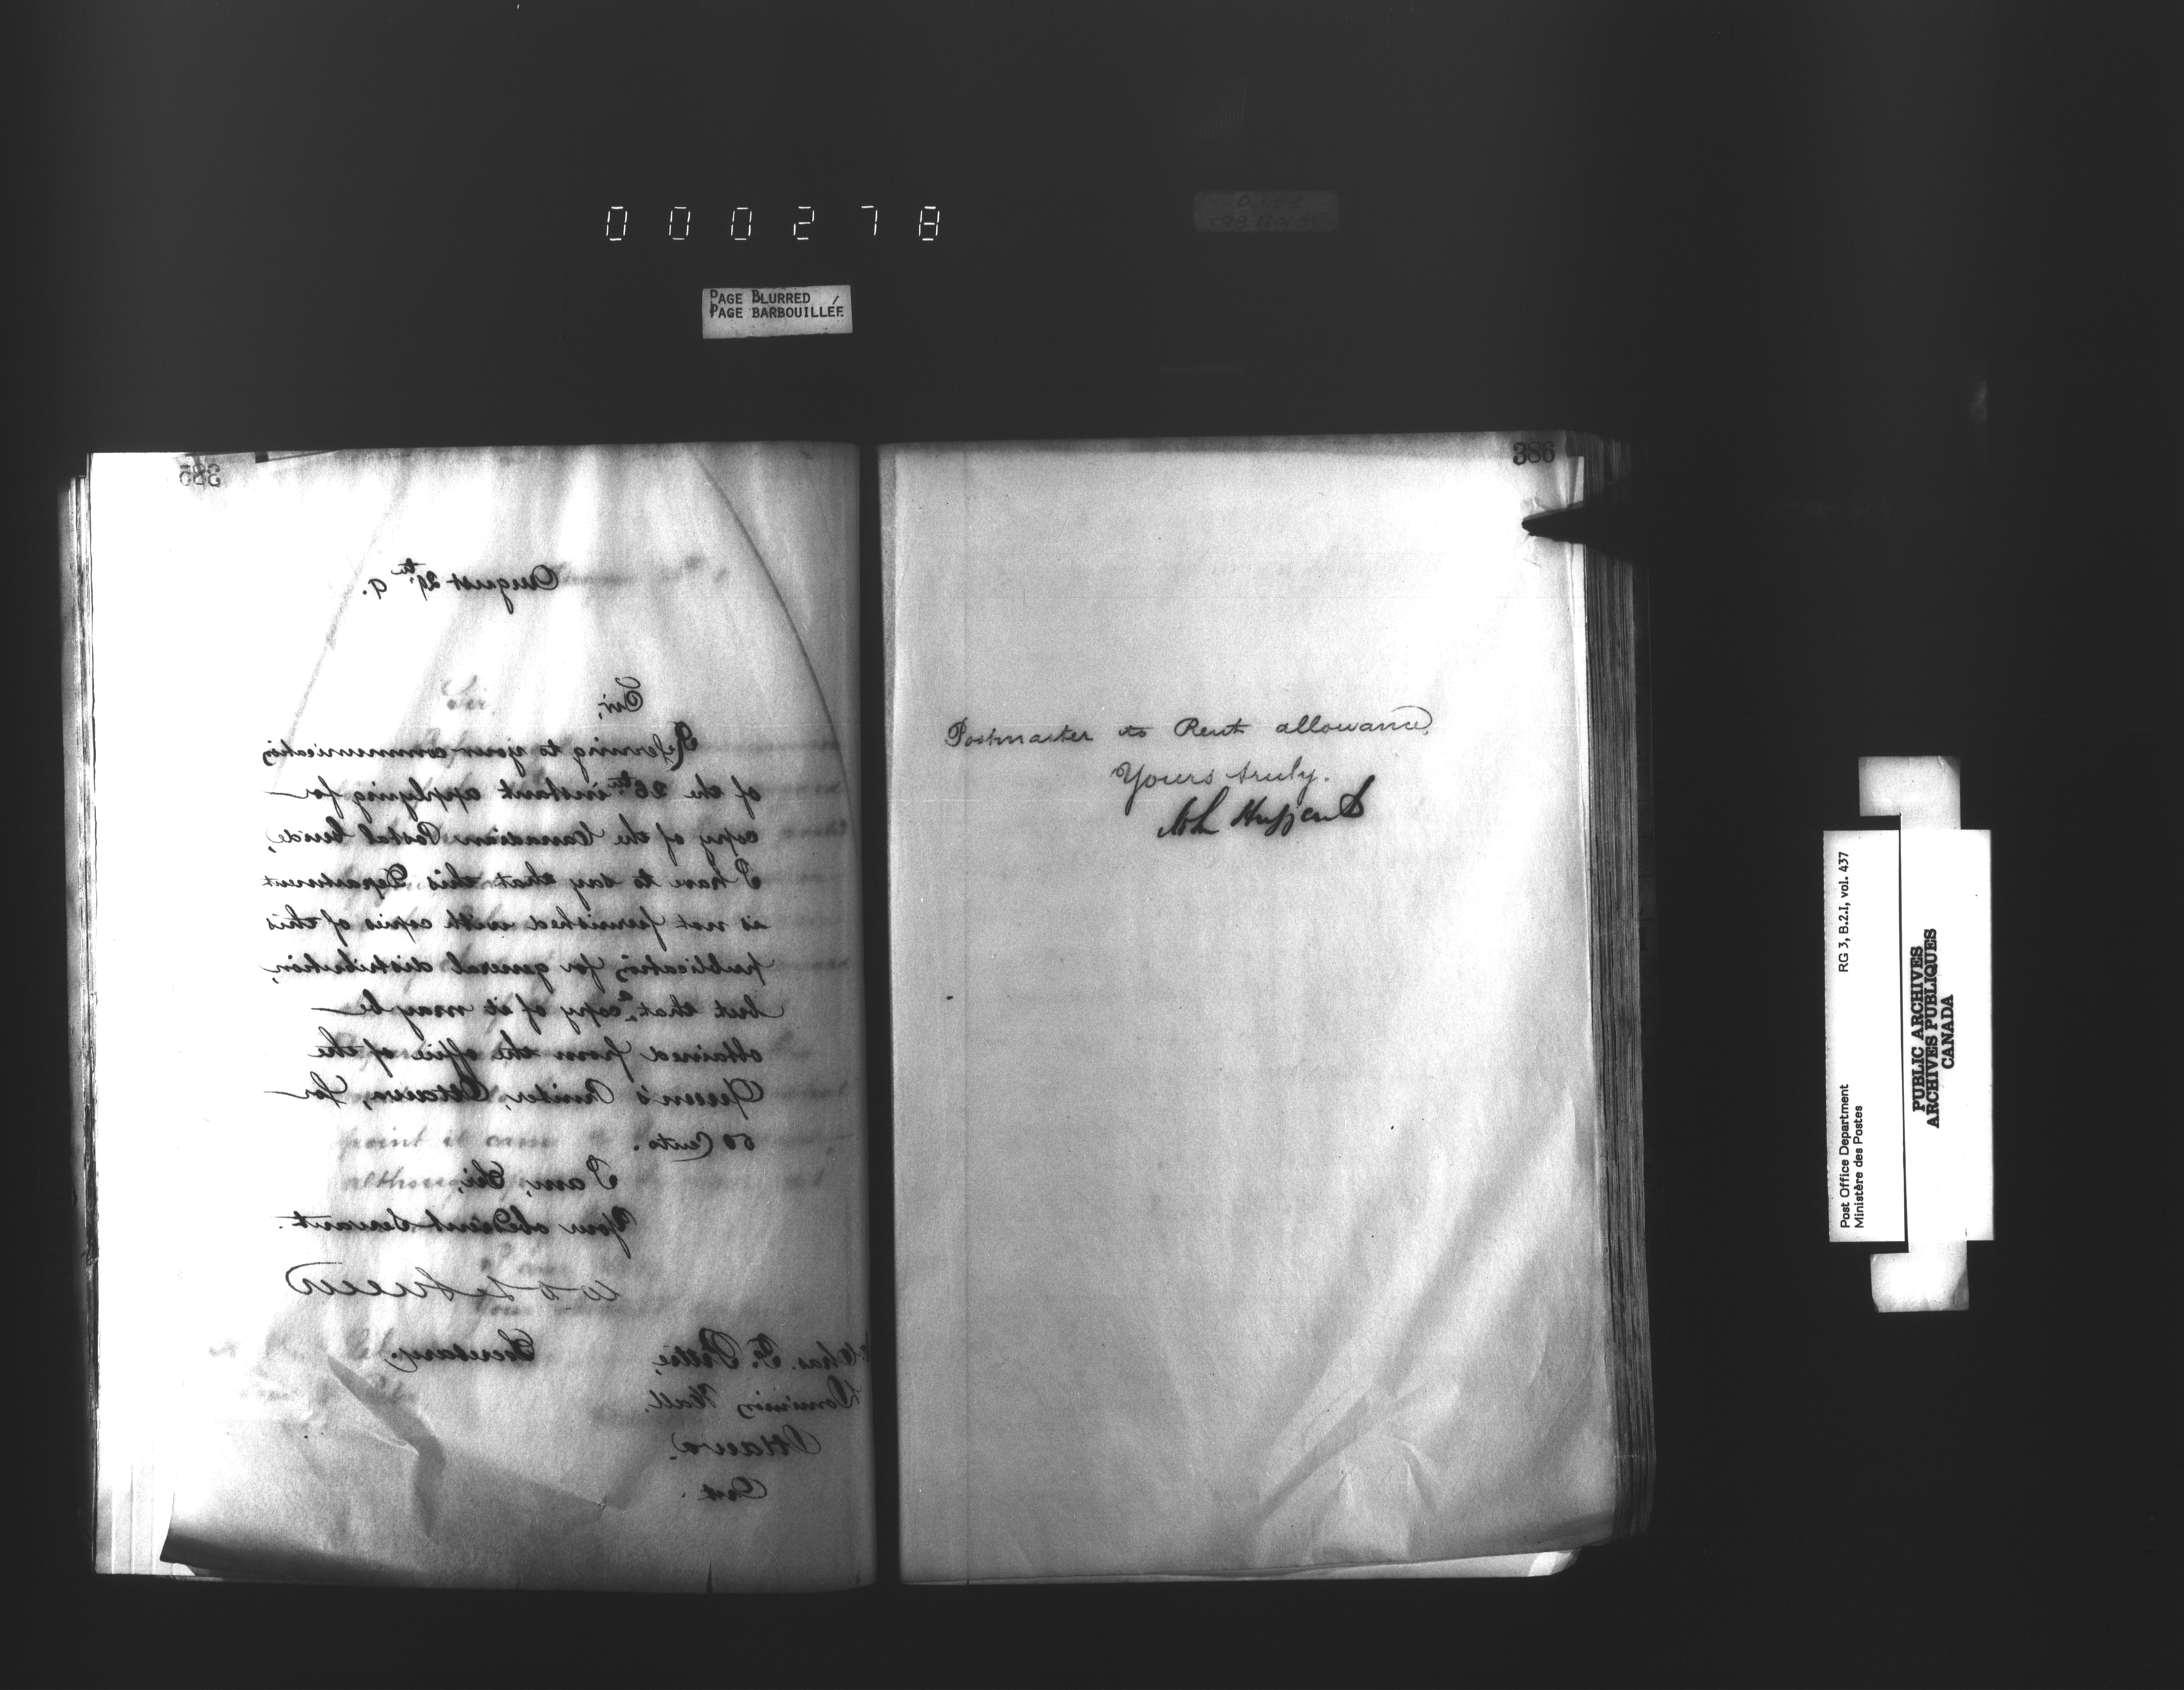 000278
PAGE BLURRED
PAGE BARBOUILLÉE
385
August 29th 9.
Sir,
Referring to your communication
of the 26th instant applying for
copy of the Canadian Postal Guide,
I have to say that this Department
is not furnished with copies of this
publication for general distribution,
but that a copy of it may be
obtained from the office of the
Queen's Printer, Ottawa, for
50 Cents.
I am, Sir,
Your obedient Servant.
W D LeSueur
Secretary.
Chas. F.
Dominion Hall,
Ottawa.
Ont.
386
Postmaster to Rent allowance,
Yours truly.
Post Office Department
Ministère des Postes
RG 3, B.2.I, vol. 437
PUBLIC ARCHIVES
ARCHIVES PUBLIQUES
CANADA